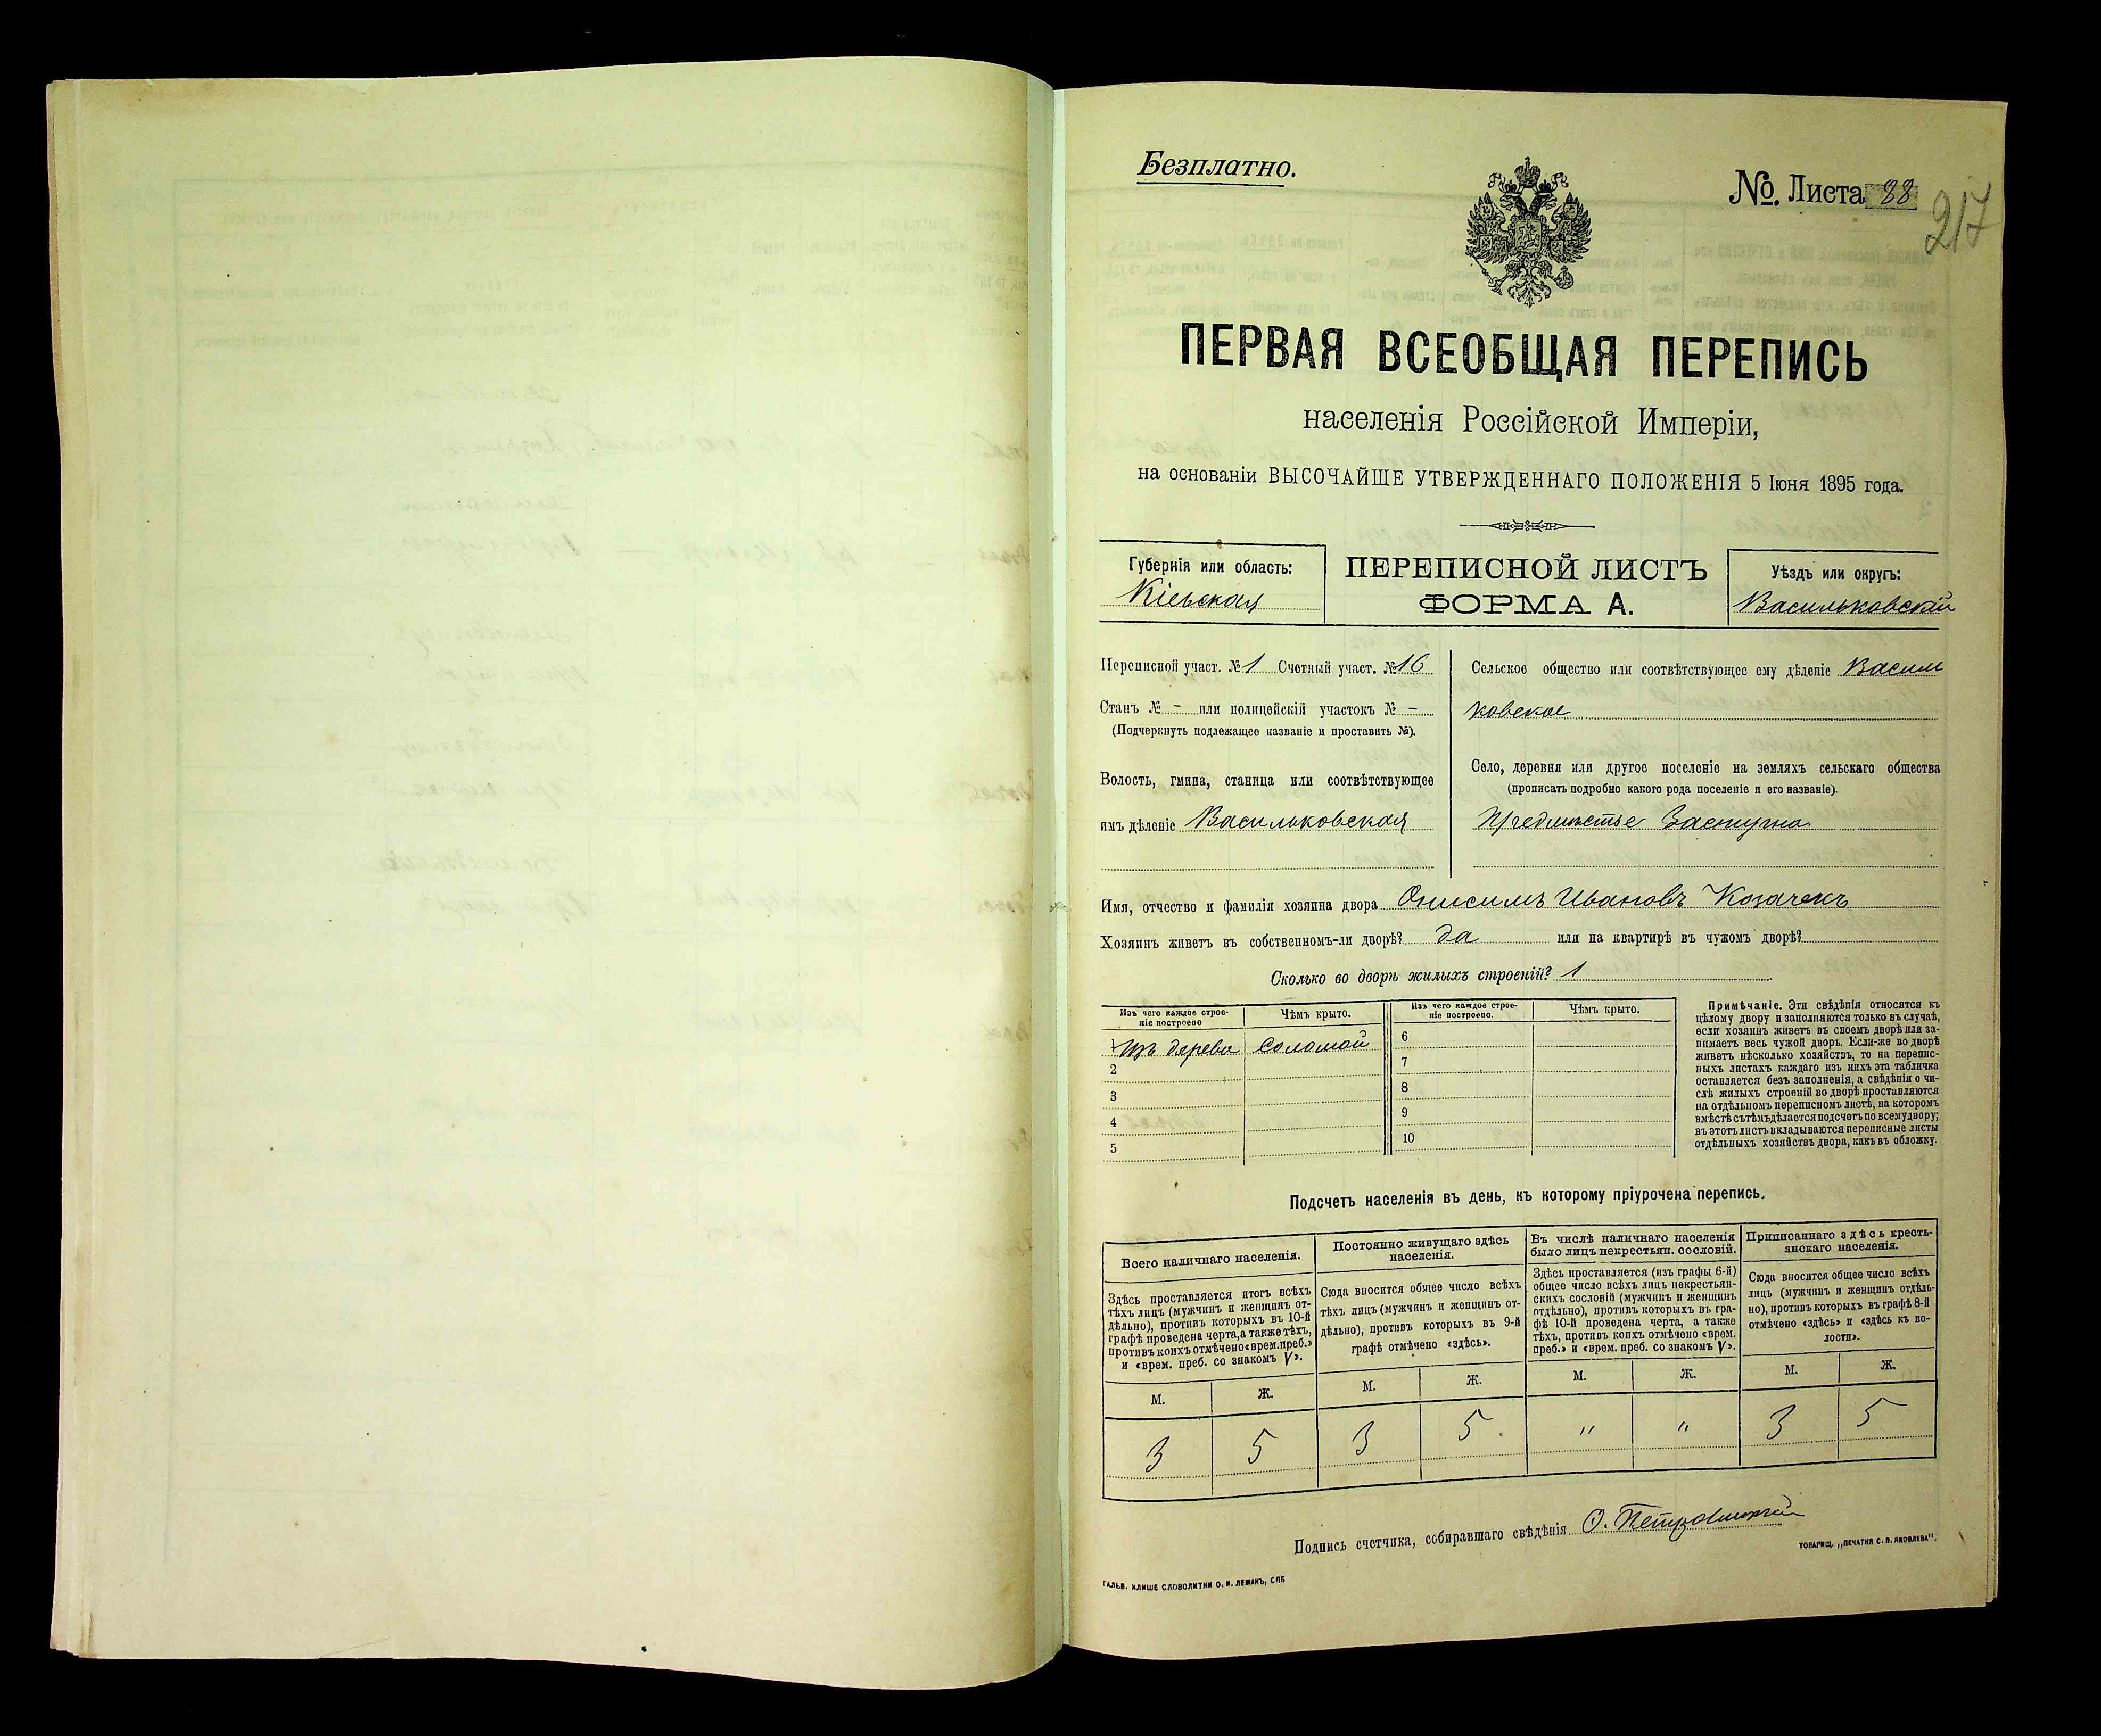 Безплатно.
№. Листа 88
217
ПЕРВАЯ ВСЕОБЩАЯ ПЕРЕПИСЬ
населенія Россійской Имперіи,
на основаніи ВЫСОЧАЙШЕ УТВЕРЖДЕННАГО ПОЛОЖЕНІЯ 5 Іюня 1895 года.
Губернія или область:
Кіевская
ПЕРЕПИСНОЙ ЛИСТЪ
ФОРМА А.
Уѣздъ или округъ:
Васильковскій
Переписной участ. № 1 Счетный участ. № 16
Станъ № - или полицейскій участокъ № -
(Подчеркнуть подлежащее названіе и проставить №).
Волость, гмина, станица или соотвѣтствующее
имъ дѣленіе Васильковская
Сельское общество или соотвѣтствующее ему дѣленіе Василь
ковское
Село, деревня или другое поселеніе на земляхъ сельскаго общества
(прописать подробно какого рода поселеніе и его названіе).
Предмѣстье Застугна
Имя, отчество и фамилія хозяина двора Онисимъ Ивановъ Козачекъ
Хозяинъ живетъ въ собственномъ-ли дворѣ? да или на квартирѣ въ чужомъ дворѣ?
Сколько во дворѣ жилыхъ строеній? 1
Изъ чего каждое строе-
ніе построено
Чѣмъ крыто.
Изъ чего каждое строе-
ніе построено.
Чѣмъ крыто.
1 Изъ дерева Соломой
2
3
4
5
6
7
8
9
10
Примѣчаніе. Эти свѣдѣнія относятся къ
цѣлому двору и заполняются только въ случаѣ,
если хозяинъ живетъ въ своемъ дворѣ или за-
нимаетъ весь чужой дворъ. Если-же во дворѣ
живетъ нѣсколько хозяйствъ, то на перепис-
ныхъ листахъ каждаго изъ нихъ эта табличка
оставляется безъ заполненія, а свѣдѣнія о чи-
слѣ жилыхъ строеній во дворѣ проставляются
на отдѣльномъ переписномъ листѣ, на которомъ
вмѣстѣ съ тѣмъ дѣлается подсчетъ по всему двору;
въ этотъ листъ вкладываются переписные листы
отдѣльныхъ хозяйствъ двора, какъ въ обложку.
Подсчетъ населенія въ день, къ которому пріурочена перепись.
Всего наличнаго населенія.
Здѣсь проставляется итогъ всѣхъ
тѣхъ лицъ (мужчинъ и женщинъ от-
дѣльно), противъ которыхъ въ 10-й
графѣ проведена черта, а также тѣхъ,
противъ коихъ отмѣчено «врем. преб.»
и «врем. преб. со знакомъ V».
Постоянно живущаго здѣсь
населенія.
Сюда вносится общее число всѣхъ
тѣхъ лицъ (мужчинъ и женщинъ от-
дѣльно), противъ которыхъ въ 9-й
графѣ отмѣчено «здѣсь».
Въ числѣ наличнаго населенія
было лицъ некрестьян. сословій.
Здѣсь проставляется (изъ графы 6-й)
общее число всѣхъ лицъ некрестьян-
скихъ сословій (мужчинъ и женщинъ
отдѣльно), противъ которыхъ въ гра-
фѣ 10-й проведена черта, а также
тѣхъ, противъ коихъ отмѣчено «врем.
преб.» и «врем. преб. со знакомъ V».
Приписаннаго здѣсь кресть-
янскаго населенія.
Сюда вносится общее число всѣхъ
лицъ (мужчинъ и женщинъ отдѣль-
но), противъ которыхъ въ графѣ 8-й
отмѣчено «здѣсь» и «здѣсь къ во-
лости».
М. Ж. М. Ж. М. Ж. М. Ж.
3 5 3 5 " " 3 5
Подпись счетчика, собиравшаго свѣдѣнія О.
ГАЛЬВ. КЛИШЕ СЛОВОЛИТНИ О. И. ЛЕМАНЪ, СПБ
ТОВАРИЩ. „ПЕЧАТНЯ С. П. ЯКОВЛЕВА".